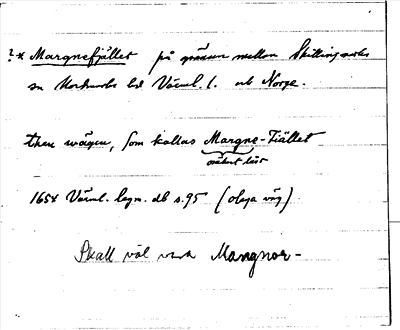 ?* Margnefjället på gränsen mellan Skillingmarks
sn Nordmarks hd Värml. l. och Norge.
then wägen, som kallas Margne-Fiället
osäkert läst
1654 Värml. lagm. db s. 95 (olaga väg)
Skall väl vara Mangnor-